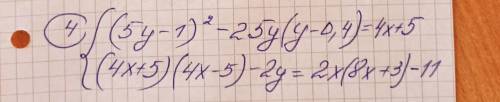 ④ { (5y-1)² - 25y(y-0,4) = 4x+5
(4x+5)(4x-5) - 2y = 2x(8x+3) - 11